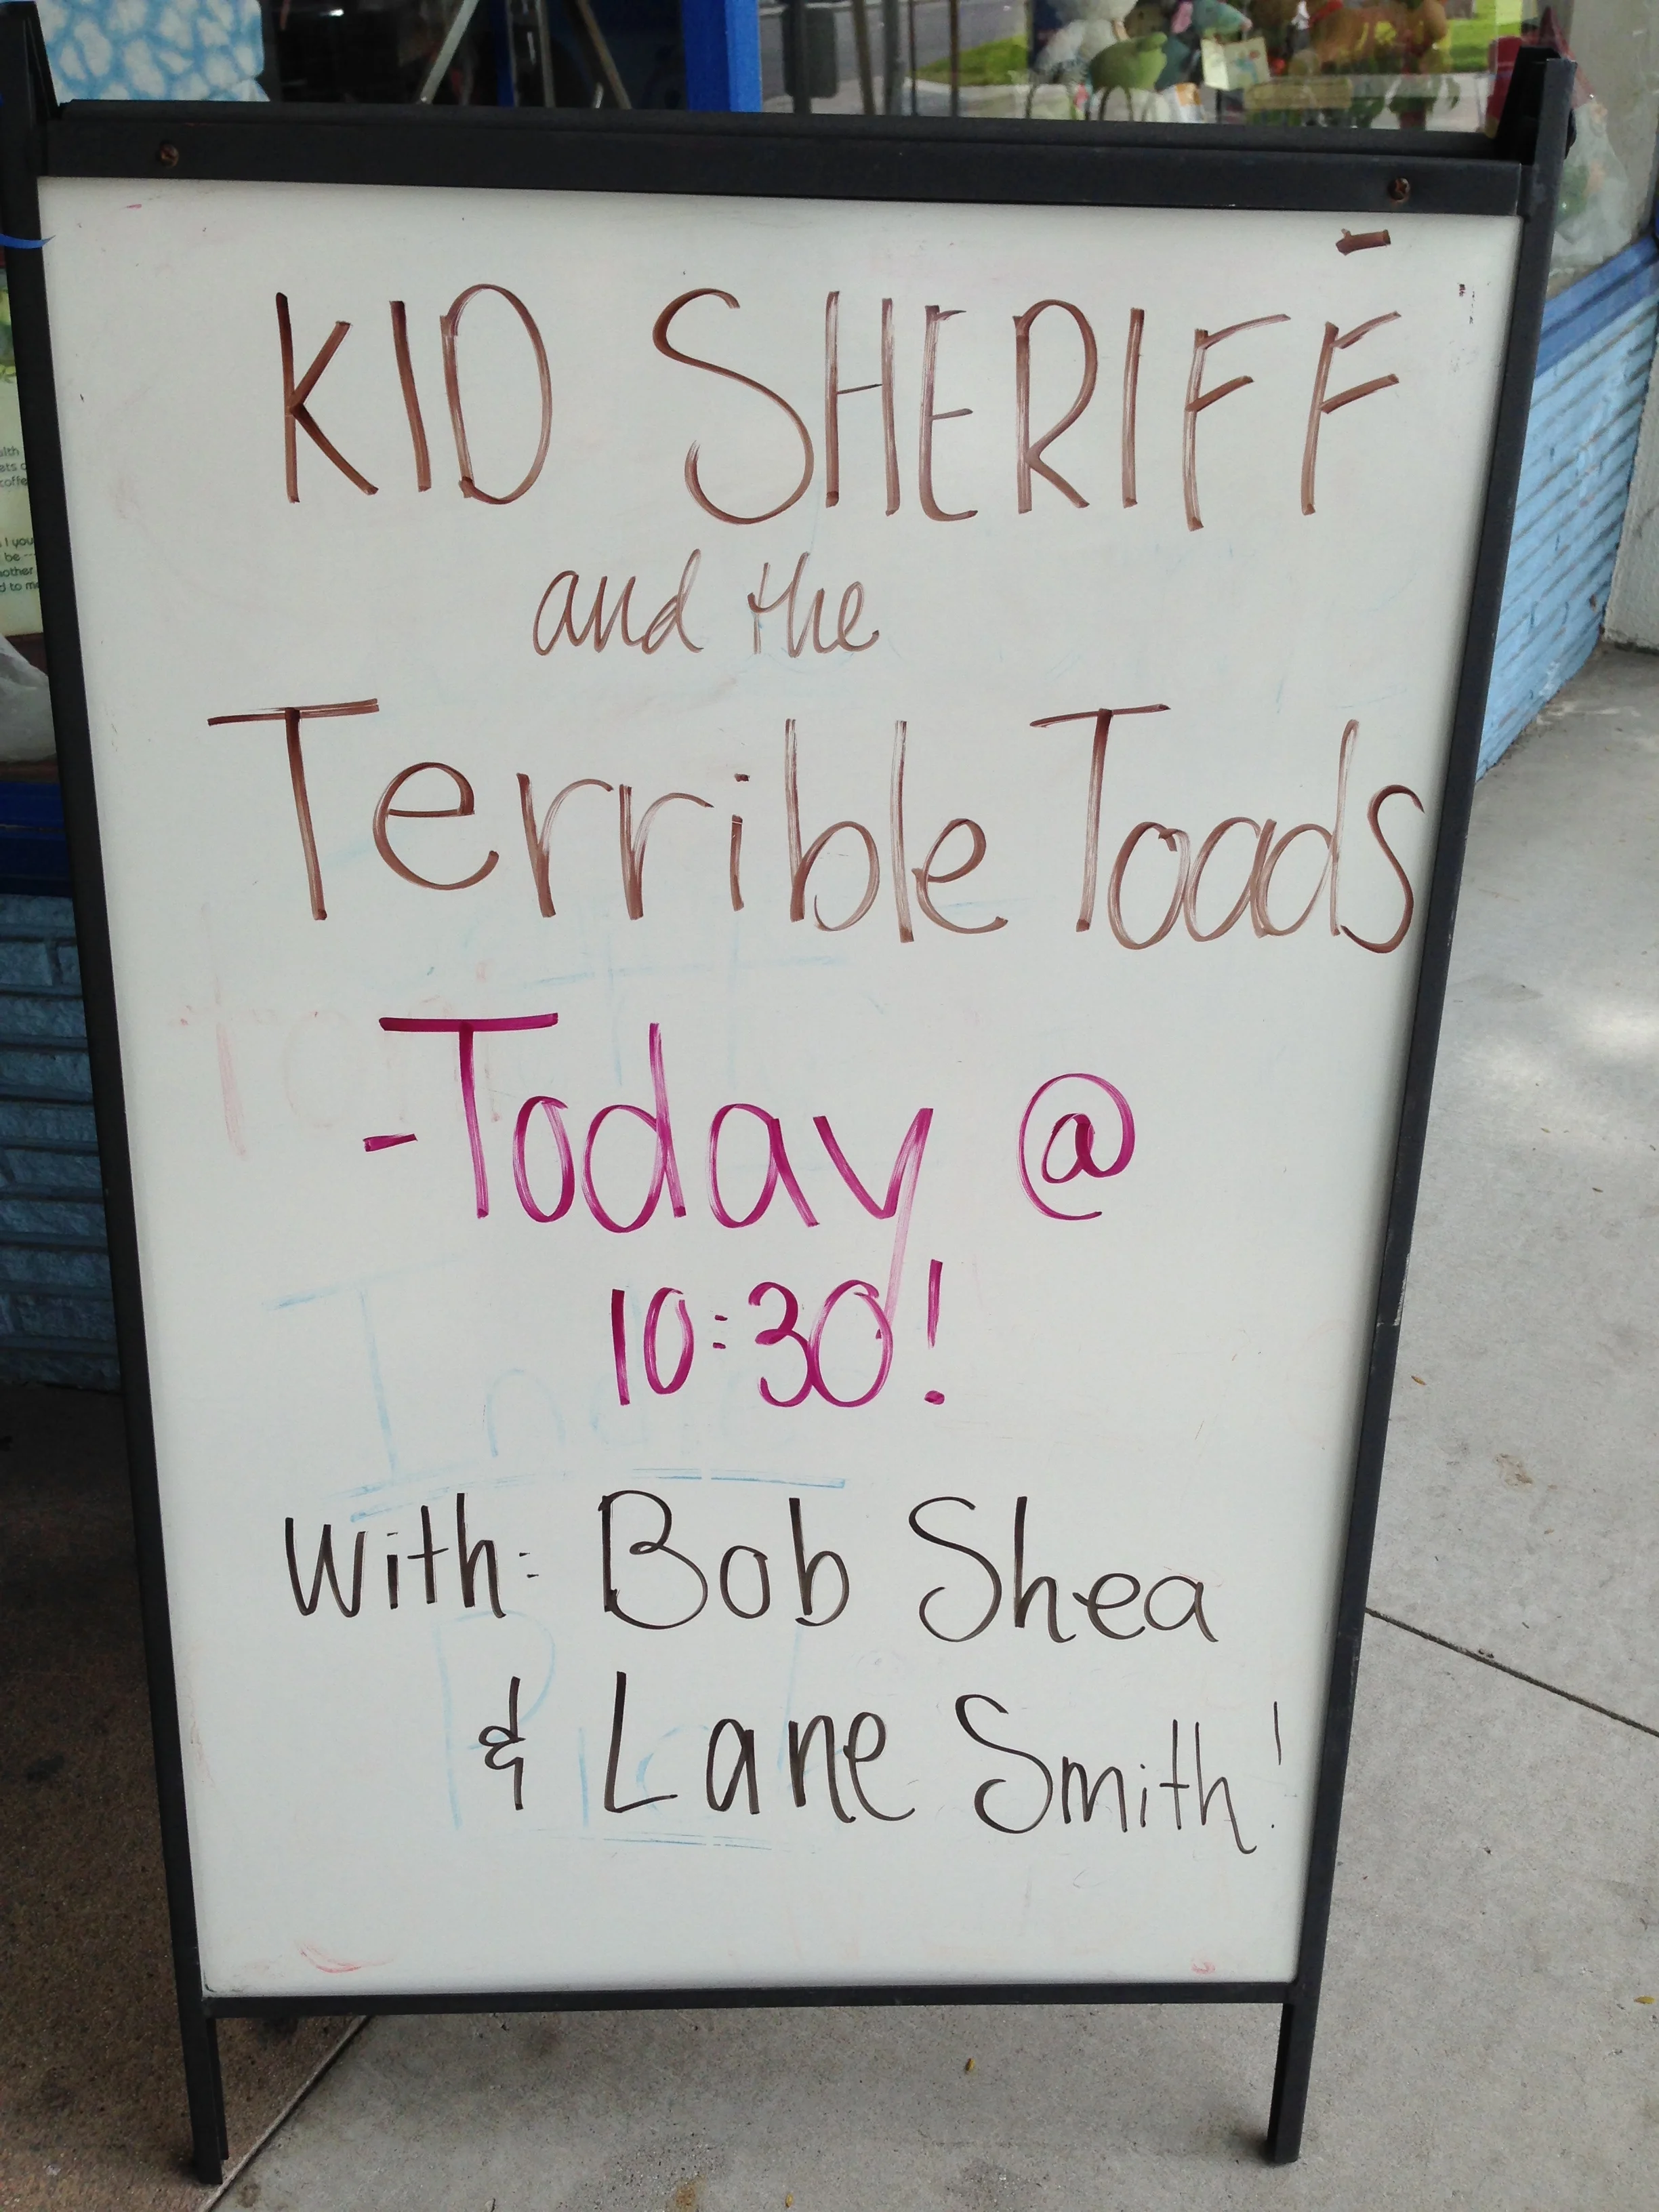 KID SHERIFF
and the
Terrible Toads
-Today @
10:30!
With: Bob Shea
& Lane Smith!